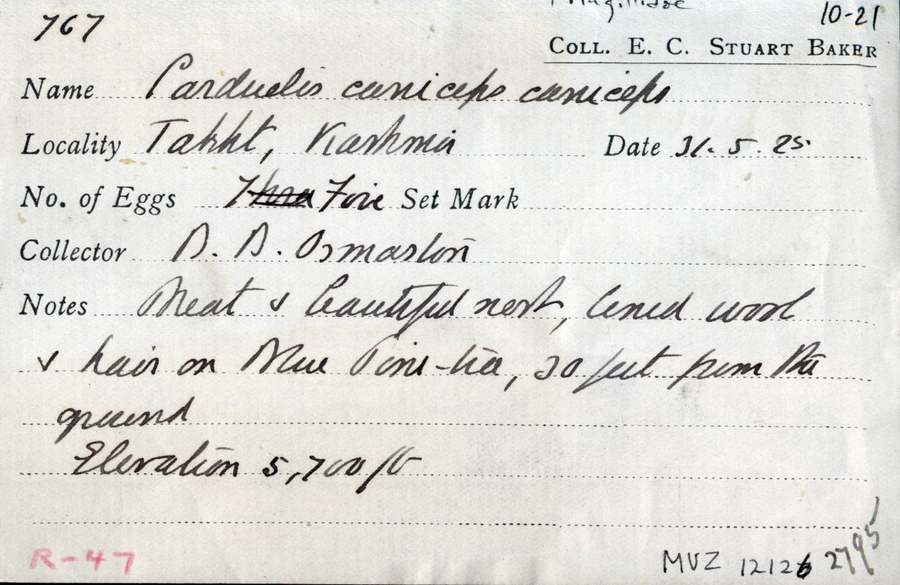 767
Fringillidae 10-21
COLL. E. C. STUART BAKER
Name Carduelis caniceps caniceps
Locality Takht, Kashmir Date 31. 5. 25.
No. of Eggs Three Five Set Mark
Collector B. B. Osmaston
Notes Neat & beautiful nest, lined wool
& hair on Blue Pine-tree, 30 feet from the
ground
Elevation 5,700 ft
R-47
MVZ 12126 2795